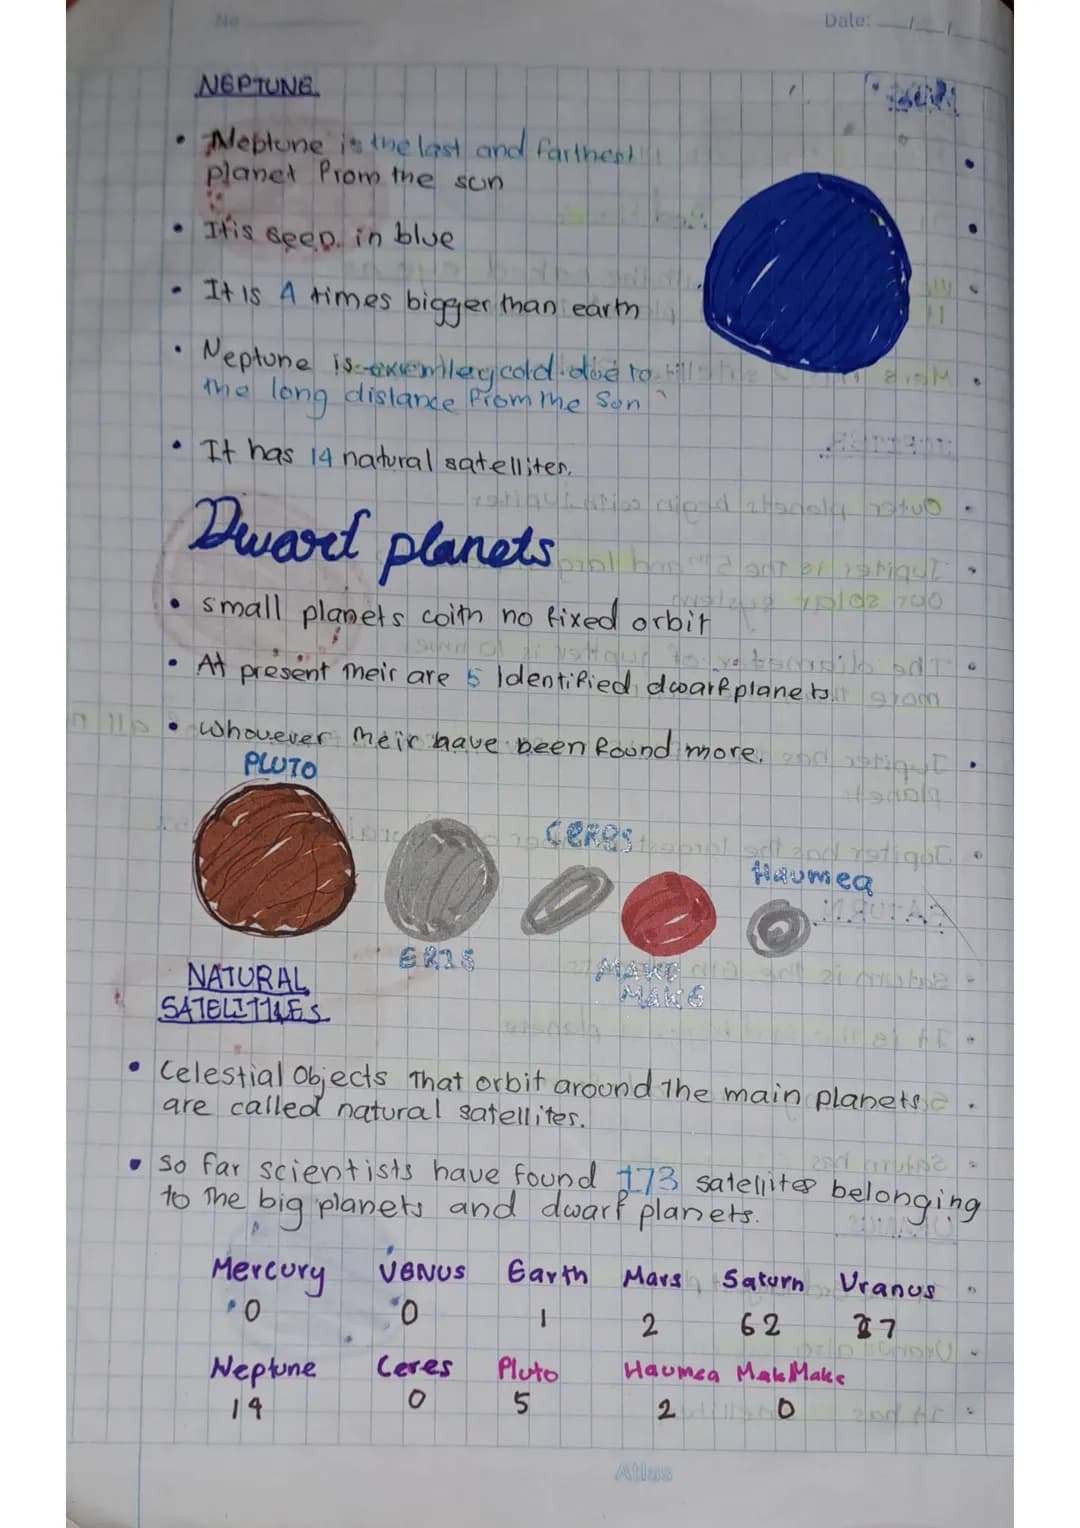 No
Date:
NEPTUNE
• Neptune is the last and farthest
planet From the sun
• It is seen. in blue
• It Is 4 times bigger than earth
• Neptune is exemlley cold due to
the long distance From the Sun
• It has 14 natural satellites.
Dwarf planets
• small planets with no fixed orbit
• At present their are 5 Identified dwarf planets.
• Whouever their have been found more.
PLUTO
CERES
Haumea
ERIS
MAKE
MAKE
NATURAL
SATELITTLES
• Celestial Objects That orbit around The main planets
are called natural satellites.
• So far scientists have found 173 satellites belonging
to The big planets and dwarf planets.
Mercury VENUS Earth Mars Saturn Uranus
0 0 1 2 62 27
Neptune Ceres Pluto Haumea MakMake
14 0 5 2 0
Atlas